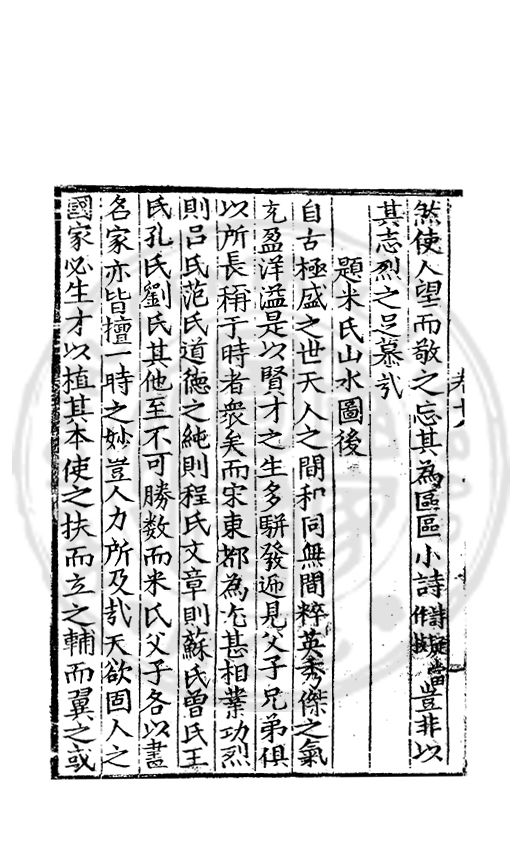 然使人望而敬之忘其為區區小詩詩疑當作技豈非以
其志烈之足慕哉
題米氏山水圖後
自古極盛之世天人之間和同無間粹英秀傑之氣
充盈洋溢是以賢才之生多駢發遞見父子兄弟俱
以所長稱于時者衆矣而宋東都為尤甚相業功烈
則吕氏范氏道德之純則程氏文章則蘇氏曾氏王
氏孔氏劉氏其他至不可勝数而米氏父子各以畫
名家亦皆擅一時之妙豈人力所及哉天欲固人之
國家必生才以植其本使之扶而立之輔而翼之或